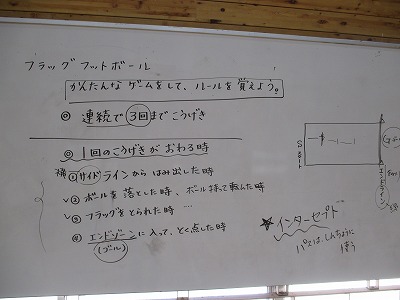 フラッグフットボール
かんたんなゲームをして、ルールを覚えよう。
◎ 連続で3回までこうげき
◎ 1回のこうげきがおわる時
① サイドラインからはみ出した時
✓② ボールを落とした時、ボール持って転んだ時
✓③ フラッグをとられた時…
④ エンドゾーンに入って、とく点した時
(ゴール)
★インターセプト
パスは、しんちょうに
使う
エンドライン